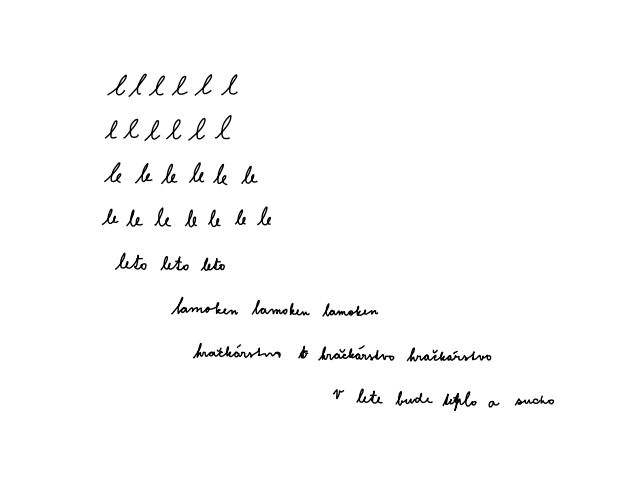 l l l l l l
l l l l l l
le le le le le le
le le le le le le le
leto leto leto
lamoken lamoken lamoken
hračkárstvo hračkárstvo
v lete bude teplo a sucho